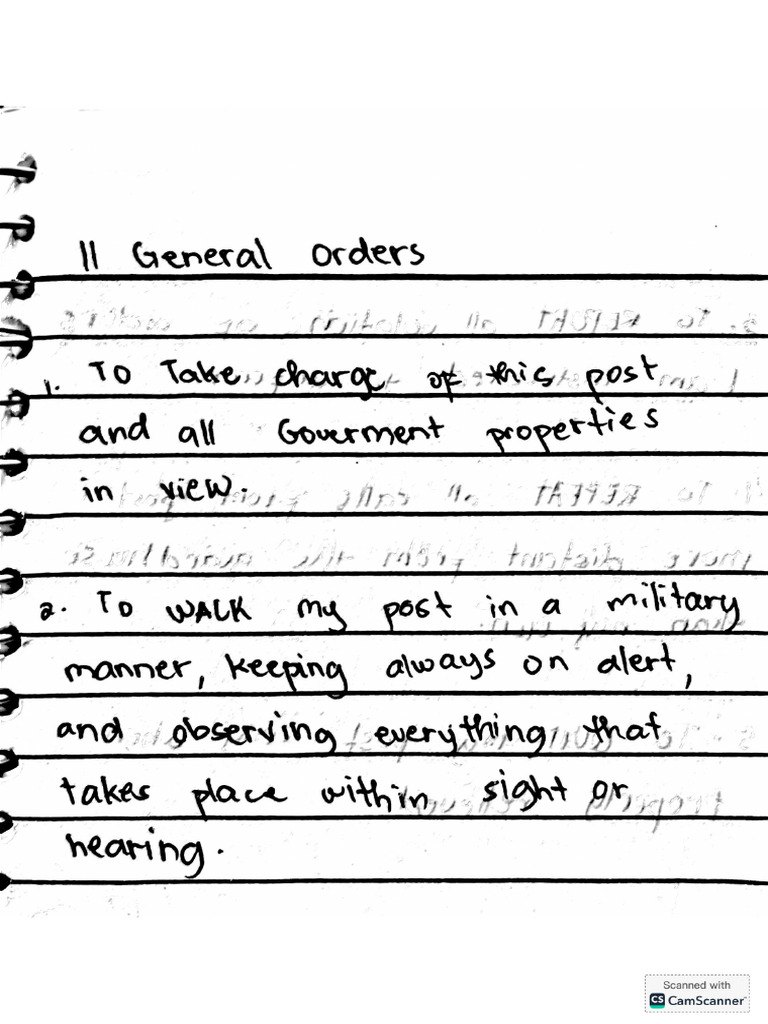 11 General Orders
1. To Take charge of this post
and all Goverment properties
in view.
2. To WALK my post in a military
manner, keeping always on alert,
and observing everything that
takes place within sight or
hearing.
Scanned with
CS CamScanner